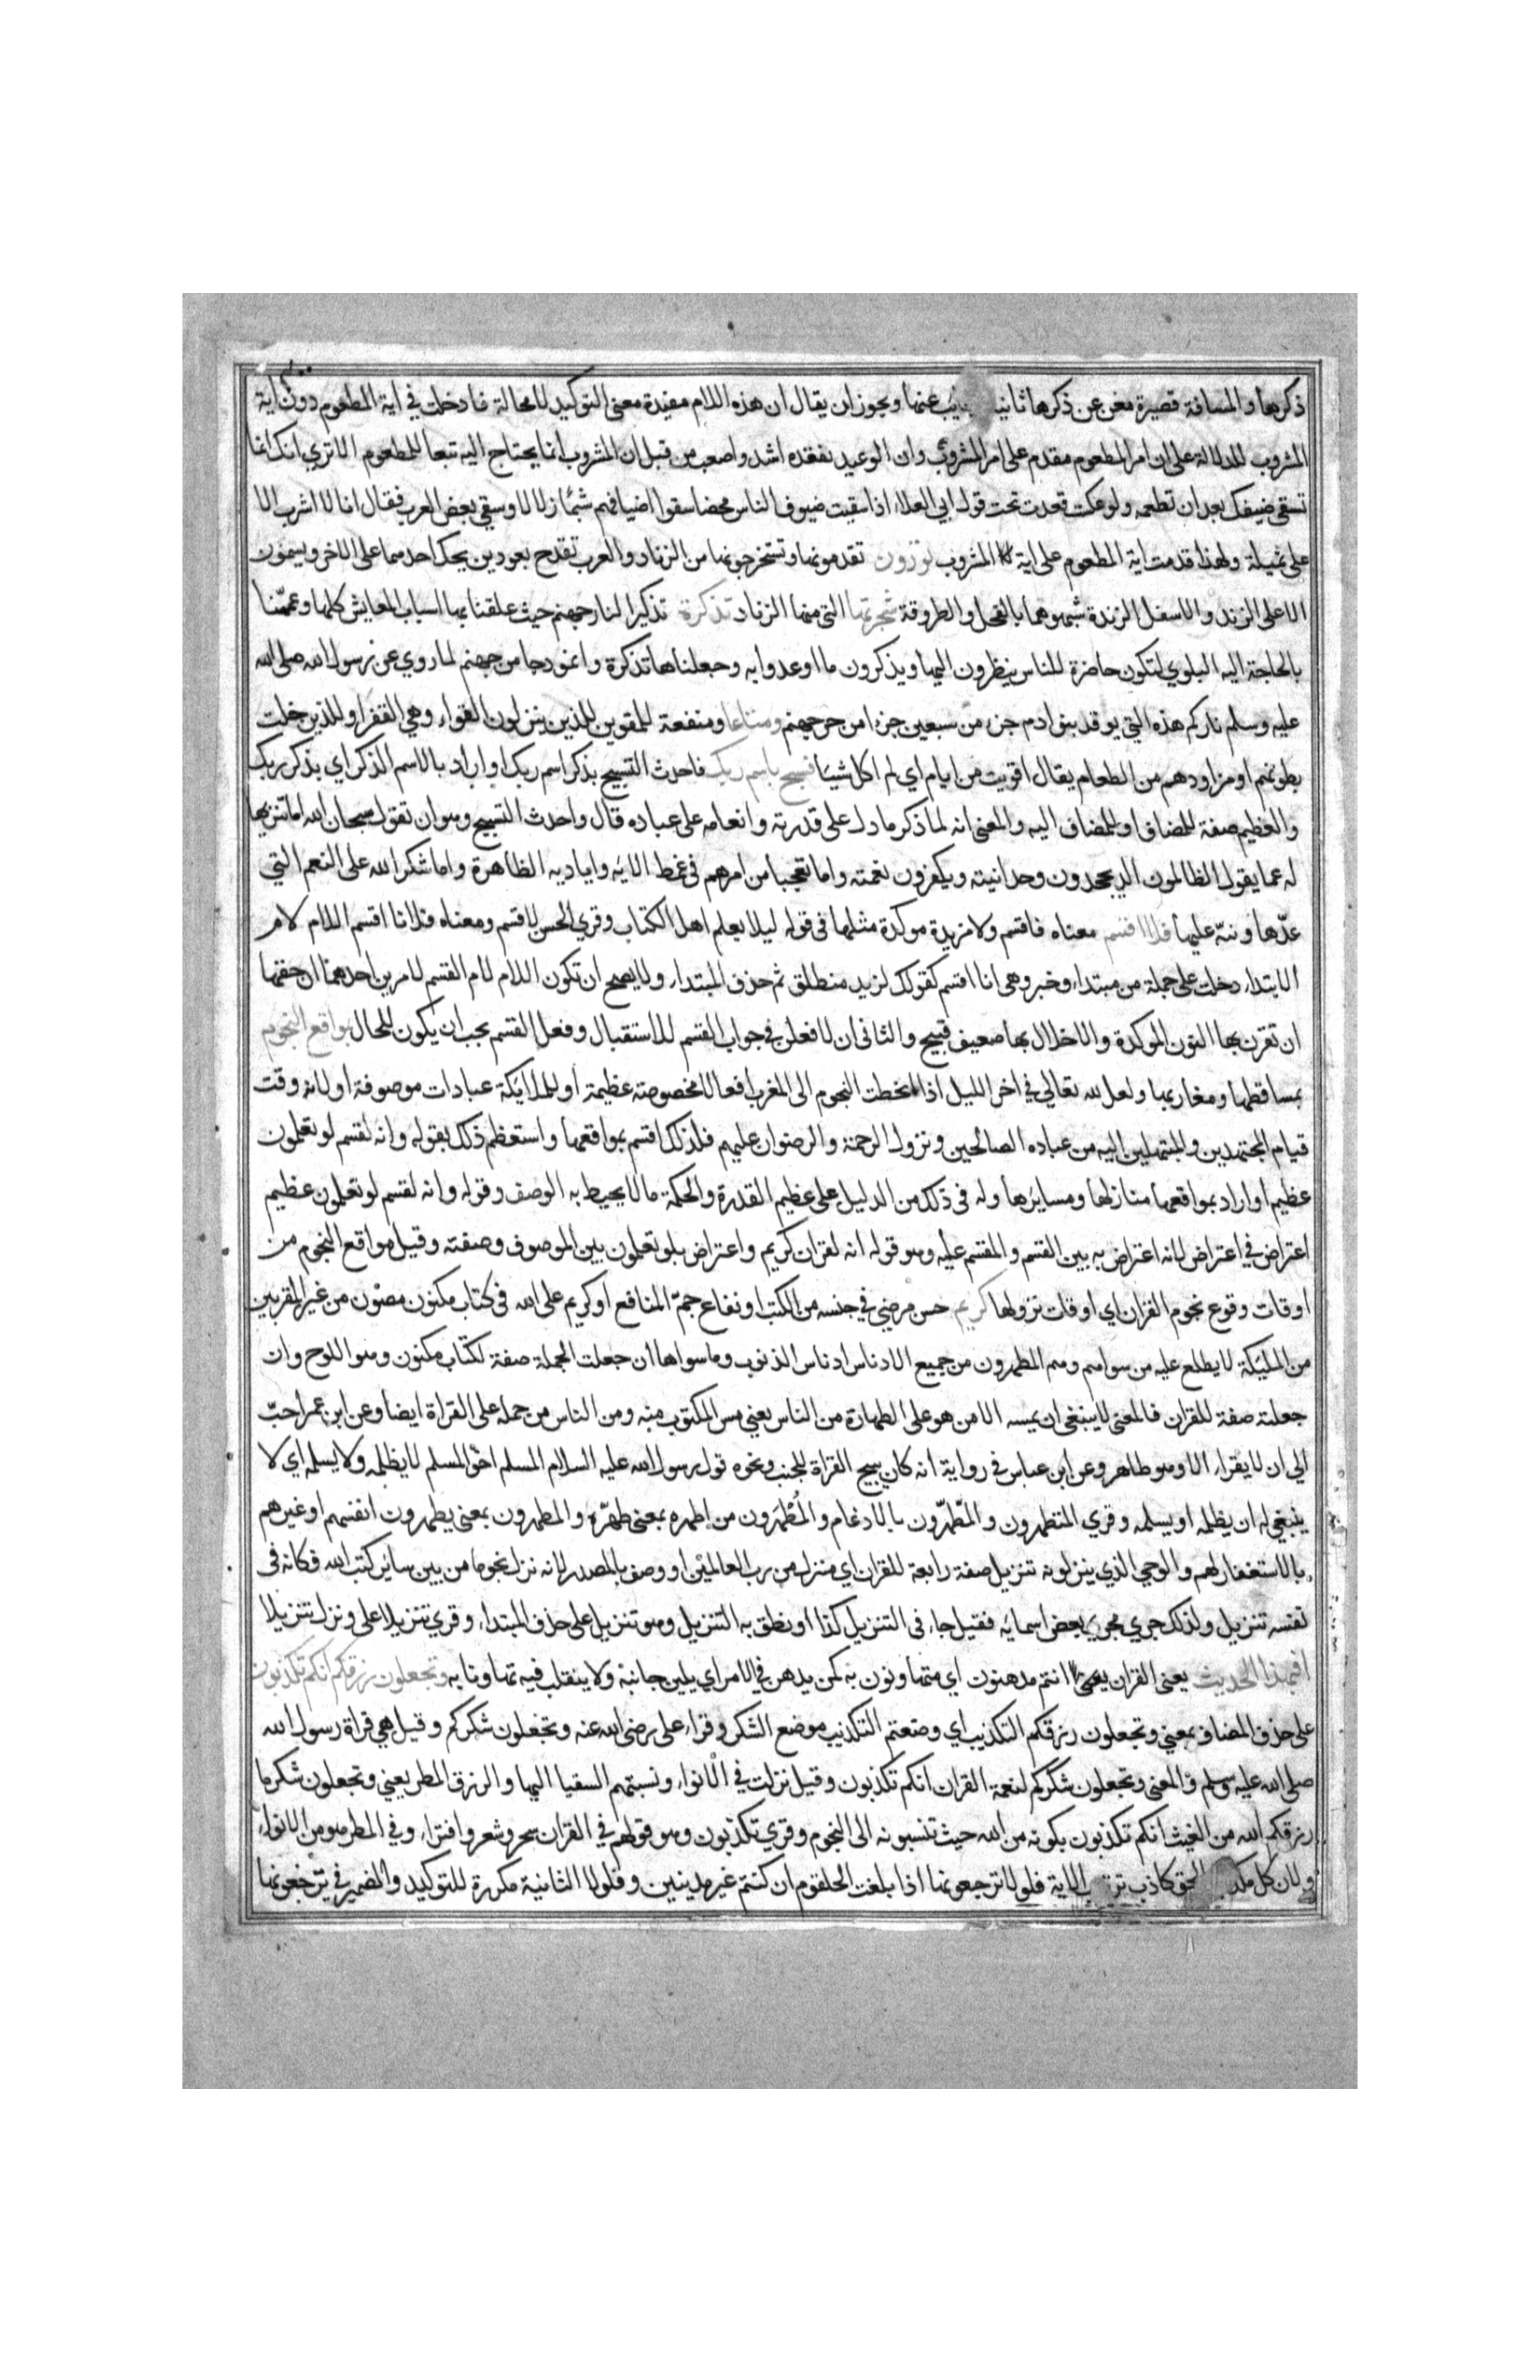 ذكرها والمسافة قصيرة مغن عن ذكرها ثانيا ونايب عنها ويجوز ان يقال ان هذه اللام مفيدة معنى التوكيد لا محالة فادخلت في اية المطعوم دون اية
المشروب للدلالة على ان امر المطعوم مقدم على امر المشروب وان الوعيد بفقده اشد واصعب من قبل ان المشروب انما يحتاج اليه تبعا للمطعوم الا تري انك انما
تسقي ضيفك بعد ان تطعمه ولو عكست قعدت تحت قول ابي العلاء اذا سقيت ضيوف الناس محضا سقوا اضيافهم شبما زلالا وسقي بعض العرب فقال انا لا اشرب الا
على ثميلة ولهذا قدمت اية المطعوم على اية المشروب تورون تقدحونها وتستخرجونها من الزناد والعرب تقدح بعودين يحك احدهما على الاخر ويسمون
الاعلى الزند والاسفل الزندة شبهوهما بالفحل والطروقة شجرتها التي منها الزناد تذكرة تذكيرا لنار جهنم حيث علقنا بها اسباب المعايش كلها وعممنا
بالحاجة اليه البلوي لتكون حاضرة للناس ينظرون اليها ويذكرون ما اوعدوا به وجعلناها تذكرة وانموذجا من جهنم لما روي عن رسول الله صلى الله
عليه وسلم ناركم هذه التي يوقد بنو ادم جزء من سبعين جزءا من حر جهنم ومتاعا ومنفعة للمقوين للذين ينزلون القواء وهي القفر او للذين خلت
بطونهم او مزاودهم من الطعام يقال اقويت من ايام اي لم اكل شيئا فسبح باسم ربك فاحدث التسبيح بذكر اسم ربك او اراد بالاسم الذكر اي بذكر ربك
والعظيم صفة للمضاف او للمضاف اليه والمعنى انه لما ذكر ما دل على قدرته وانعامه على عباده قال واحدث التسبيح وهو ان تقول سبحان الله اما تنزيها
له عما يقول الظالمون الذين يجحدون وحدانيته ويكفرون نعمته واما تعجبا من امرهم في غمط الايه واياديه الظاهرة واما شكر الله على النعم التي
عدّها ونبّه عليها فلا اقسم معناه فاقسم ولا مزيدة موكدة مثلها في قوله ليلا يعلم اهل الكتاب وقري الحسن لاقسم ومعناه فلانا اقسم اللام لام
الابتداء دخلت على جملة من مبتداء وخبر وهي انا اقسم كقولك لزيد منطلق ثم حذف المبتداء ولا يصح ان تكون اللام لام القسم لامرين احدهما ان حقها
ان تقرن بها النون الموكدة والاخلال بها ضعيف قبيح والثاني ان لافعلن في جواب القسم للاستقبال وفعل القسم يجب ان يكون للحال بمواقع النجوم
بمساقطها ومغاربها ولعل لله تعالي في اخر الليل اذا انحطت النجوم الى المغرب افعالا مخصوصة عظيمة او للملايكة عبادات موصوفة او لانه وقت
قيام المجتهدين والمبتهلين اليه من عباده الصالحين ونزول الرحمة والرضوان عليهم فلذلك اقسم بمواقعها واستعظم ذلك بقوله وانه لقسم لو تعلمون
عظيم او اراد بمواقعها منازلها ومسايرها وله في ذلك من الدليل على عظيم القدرة والحكمة ما لا يحيط به الوصف وقوله وانه لقسم لو تعلمون عظيم
اعتراض في اعتراض لانه اعتراض به بين القسم والمقسم عليه وهو قوله انه لقران كريم واعتراض بلو تعلمون بين الموصوف وصفته وقيل مواقع النجوم من
اوقات وقوع نجوم القران اي اوقات نزولها كريم حسن مرضي في جنسه من الكتب او نفاع جم المنافع او كريم على الله في كتاب مكنون مصون من غير المقربين
من المليكة لا يطلع عليه من سواهم وهم المطهرون من جميع الادناس ادناس الذنوب وما سواها ان جعلت الجملة صفة لكتاب مكنون وهو اللوح وان
جعلته صفة للقران فالمعنى لا ينبغي ان يمسه الا من هو على الطهارة من الناس يعني مس المكتوب منه ومن الناس من حمله على القراة ايضا وعن ابن عمر احبّ
الي ان لا يقراء الا وهو طاهر وعن ابن عباس في رواية انه كان يبيح القراة للجنب ونحوه قول رسول الله عليه السلام المسلم اخو المسلم لا يظلمه ولا يسلمه اي لا
ينبغي له ان يظلمه او يسلمه وقري المتطهرون والمطّهّرون بالادغام والمُطْهَرون من اطهره بمعنى طهّره والمطهرون بمعنى يطهرون انفسهم او غيرهم
بالاستغفار لهم والوحي الذي ينزلونه تنزيل صفة رابعة للقران اي منزل من رب العالمين او وصف بالمصدر لانه نزل نجوما من بين ساير كتب الله فكانه في
نفسه تنزيل ولذلك جري مجري بعض اسمايه فقيل جاء في التنزيل كذا او نطق به التنزيل وهو تنزيل على حذف المبتداء وقري تنزيلا على ونزل تنزيلا
افبهذا الحديث يعني القران انتم مدهنون اي متهاونون به كمن يدهن في الامر اي يلين جانبه ولا يتصلب فيه تهاونا به وتجعلون رزقكم انكم تكذبون
على حذف المضاف يعني وتجعلون رزقكم التكذيب اي وضعتم التكذيب موضع الشكر وقراء على رضى الله عنه وتجعلون شكركم وقيل هي قراة رسول الله
صلى الله عليه وسلم والمعنى وتجعلون شكركم لنعمة القران انكم تكذبون وقيل نزلت في الانواء ونسبتهم السقيا اليها والرزق المطر يعني وتجعلون شكر ما
رزقكم الله من الغيث انكم تكذبون بكونه من الله حيث تنسبونه الى النجوم وقري تكذبون وهو قولهم في القران سحر وشعر وافتراء وفي المطر هو من الانواء
ولان كل مكذب بالحق كاذب ترتيب الاية فلولا ترجعونها اذا بلغت الحلقوم ان كنتم غير مدينين وفلولا الثانية مكررة للتوكيد والضمير في ترجعونها